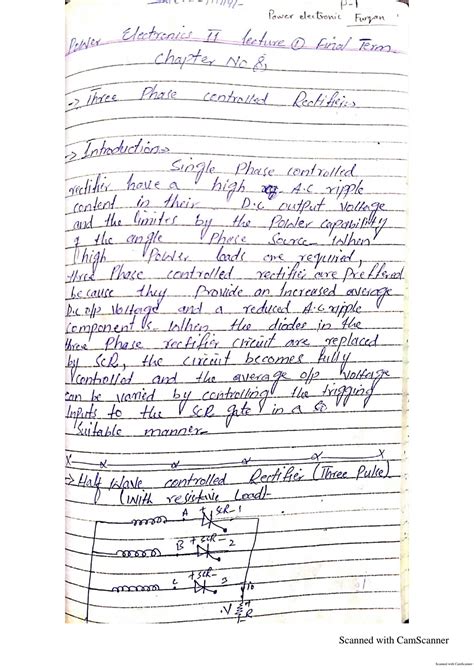 P-1
Power electronic Furqan
Power Electronics II lecture ① Final Term
Chapter No 8,
-> Three Phase controlled Rectifiers
-> Introduction->
Single Phase controlled
rectifier have a high A.C ripple
content in their D.C output voltage
and the limites by the Power capability
of the angle Phase Source. When
high Power loads are required,
three Phase controlled rectifier are Preffered
because they Provide an Increased average
D.C o/p voltage and a reduced A.C ripple
component s. When the diodes in the
three Phase rectifier circuit are replaced
by SCR, the circuit becomes fully
controlled and the average o/p voltage
can be varied by controlling the trigging
Inputs to the SCR gate in a
Suitable manner.
-> Half Wave controlled Rectifier (Three Pulse)
(With resistive Load)-
A + SCR - 1
B + SCR - 2
C + SCR - 3
Io
V R
Scanned with CamScanner
Scanned with CamScanner